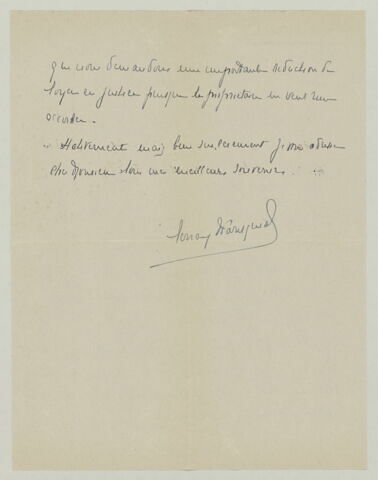 que nous demandons une importante réduction de
loyer en justice puisque le propriétaire ne veut rien
accorder.
Hâtivement mais bien sincèrement je vous adresse
cher Monsieur tous mes meilleurs souvenirs.